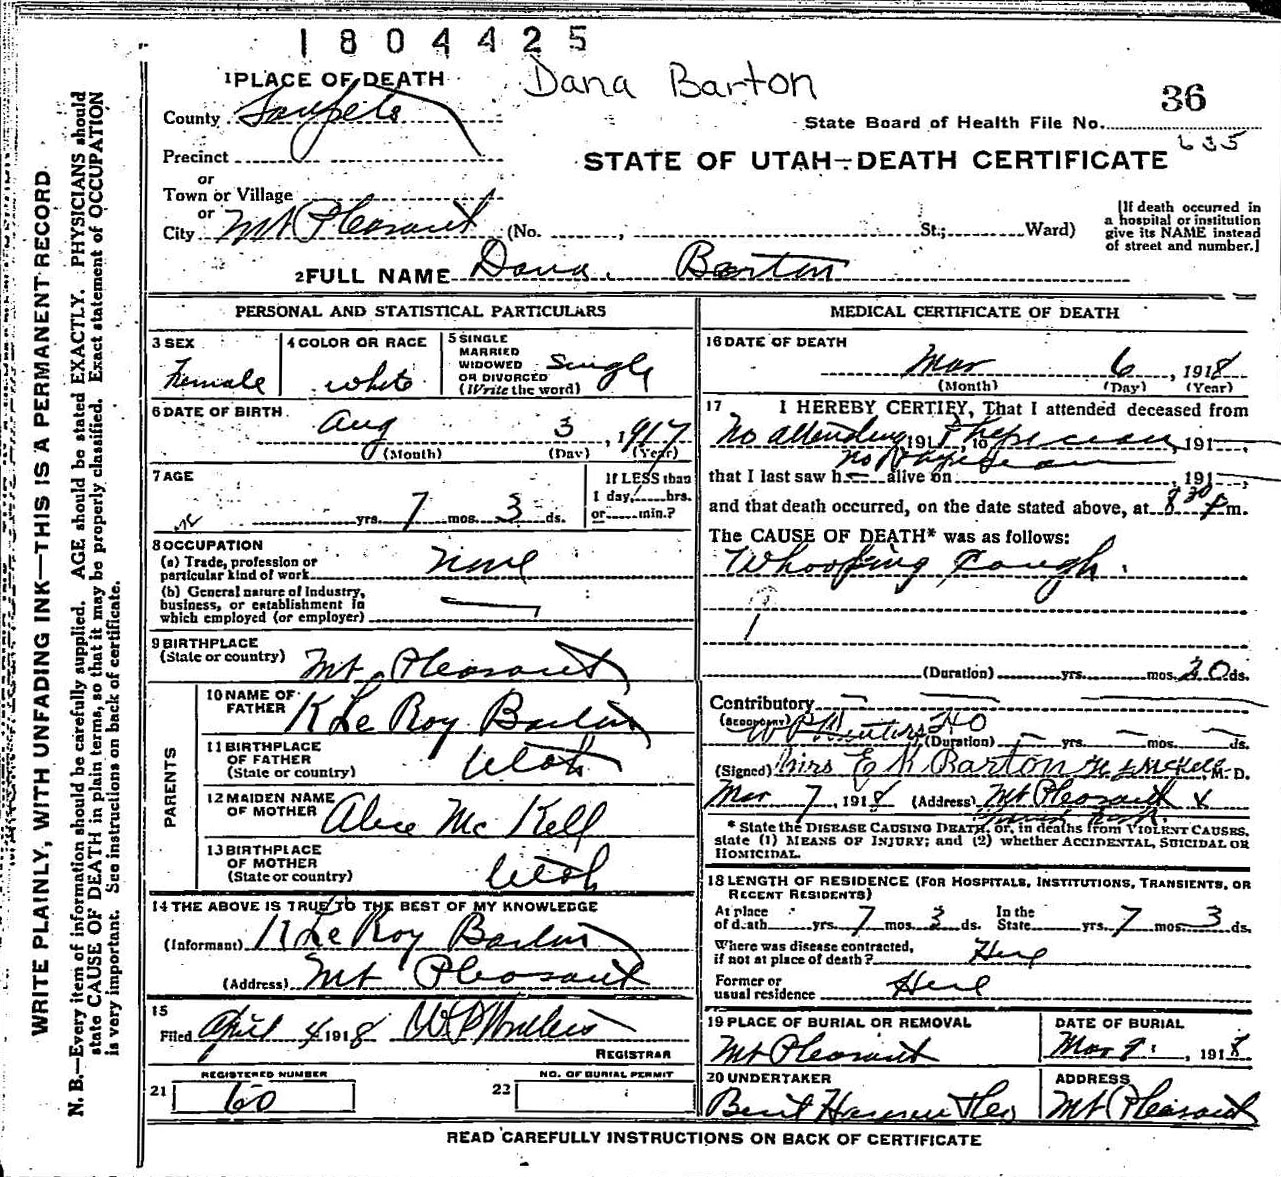 1804425
Dana Barton
1 PLACE OF DEATH
36
County Sanpete
State Board of Health File No.
635
Precinct
STATE OF UTAH—DEATH CERTIFICATE
or
Town or Village
or
City Mt Pleasant (No. , St.; Ward)
[If death occurred in
a hospital or institution
give its NAME instead
of street and number.]
2 FULL NAME Dana Barton
PERSONAL AND STATISTICAL PARTICULARS
3 SEX
Female
4 COLOR OR RACE
white
5 SINGLE
MARRIED
WIDOWED
OR DIVORCED
(Write the word)
Single
6 DATE OF BIRTH
Aug 3, 1917
(Month) (Day) (Year)
7 AGE
yrs. 7 mos. 3 ds.
If LESS than
1 day, hrs.
or min.?
8 OCCUPATION
(a) Trade, profession or
particular kind of work
none
(b) General nature of Industry,
business, or establishment in
which employed (or employer)
9 BIRTHPLACE
(State or country)
Mt Pleasant
PARENTS
10 NAME OF
FATHER
K Le Roy Barton
11 BIRTHPLACE
OF FATHER
(State or country)
Utah
12 MAIDEN NAME
OF MOTHER
Alice Mc Kell
13 BIRTHPLACE
OF MOTHER
(State or country)
Utah
14 THE ABOVE IS TRUE TO THE BEST OF MY KNOWLEDGE
(Informant) K Le Roy Barton
(Address) Mt Pleasant
15
Filed April 4 1918
REGISTRAR
21
REGISTERED NUMBER
60
22
NO. OF BURIAL PERMIT
MEDICAL CERTIFICATE OF DEATH
16 DATE OF DEATH
Mar 6, 1918
(Month) (Day) (Year)
17 I HEREBY CERTIFY, That I attended deceased from
No attending 191 , to Physician, 191
no Physician
that I last saw h alive on , 191 ,
and that death occurred, on the date stated above, at 8 30 P m.
The CAUSE OF DEATH* was as follows:
Whooping Cough.
(Duration) yrs. mos. 20 ds.
Contributory
(SECONDARY)
(Duration) yrs. mos. ds.
(Signed) Mrs E K Barton M. D.
Mar 7, 1918 (Address) Mt Pleasant x
* State the DISEASE CAUSING DEATH, or, in deaths from VIOLENT CAUSES,
state (1) MEANS OF INJURY; and (2) whether ACCIDENTAL, SUICIDAL OR
HOMICIDAL.
18 LENGTH OF RESIDENCE (FOR HOSPITALS, INSTITUTIONS, TRANSIENTS, OR
RECENT RESIDENTS)
At place
of death yrs. 7 mos. 3 ds.
In the
State yrs. 7 mos. 3 ds.
Where was disease contracted,
if not at place of death? Here
Former or
usual residence Here
19 PLACE OF BURIAL OR REMOVAL
Mt Pleasant
DATE OF BURIAL
Mar 9, 1918
20 UNDERTAKER
ADDRESS
Mt Pleasant
READ CAREFULLY INSTRUCTIONS ON BACK OF CERTIFICATE
WRITE PLAINLY, WITH UNFADING INK—THIS IS A PERMANENT RECORD
N. B.—Every item of information should be carefully supplied. AGE should be stated EXACTLY. PHYSICIANS should
state CAUSE OF DEATH in plain terms, so that it may be properly classified. Exact statement of OCCUPATION
is very important. See instructions on back of certificate.